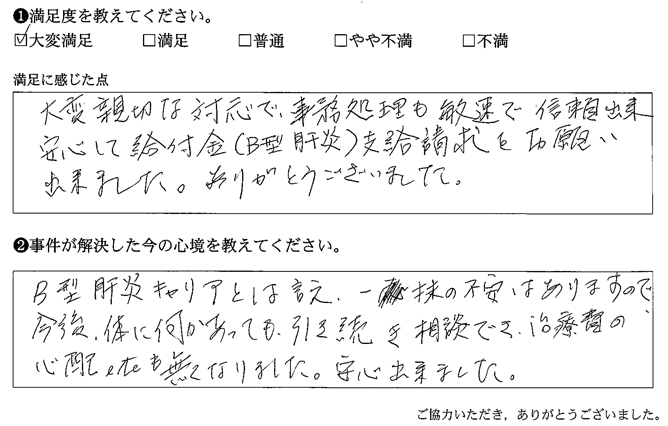 ❶満足度を教えてください。
☑大変満足 □満足 □普通 □やや不満 □不満
満足に感じた点
大変親切な対応で、事務処理も敏速で信頼出来
安心して給付金(B型肝炎)支給請求をお願い
出来ました。ありがとうございました。
❷事件が解決した今の心境を教えてください。
B型肝炎キャリアとは言え、一抹の不安はありますので
今後、体に何かあっても、引き続き相談でき、治療費の
心配etcも無くなりました。安心出来ました。
ご協力いただき，ありがとうございました。